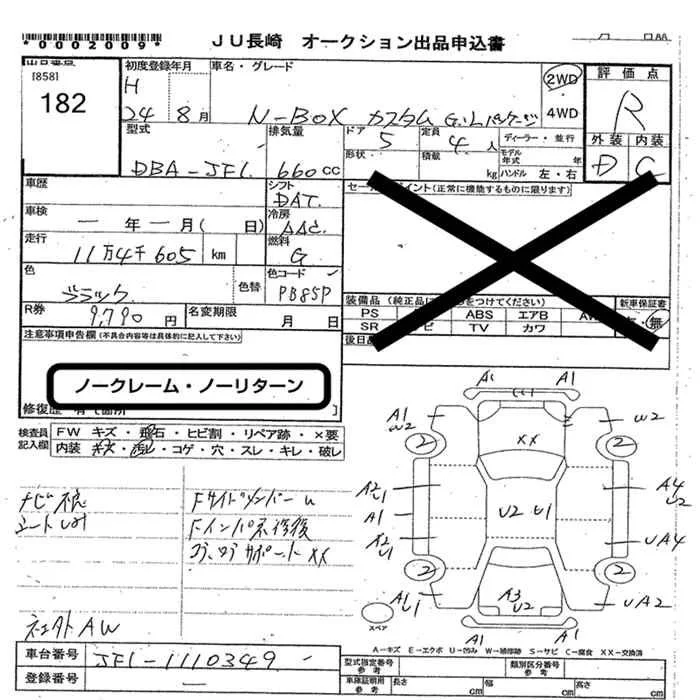 *0002009*
JU長崎 オークション出品申込書
出品番号
[858]
182
初度登録年月
H
24 8月
車名・グレード
N-BOX カスタム G・Lパッケージ
2WD
4WD
評価点
R
外装 内装
D C
型式
DBA-JF1
排気量
660CC
ドア
5
定員
4人
ディーラー・並行
形状
積載
kg
モデル年式 年
ハンドル 左・右
車歴
シフト
DAT
車検
一年一月( 日)
冷房
AAC
走行
11万4千605 km
燃料
G
色
ブラック
色替
色コード
PB85P
R券
9,790円
名変期限
月 日
イント(正常に機能するものに限ります)
装備品
をつけてください)
新車保証書
無
PS
ABS
エアB
SR
TV
カワ
後日
注意事項申告欄(不具合内容等は具体的に記入して下さい)
ノークレーム・ノーリターン
修復歴 有(箇所
検査員記入欄
FW キズ・飛石・ヒビ割・リペア跡・×要
内装 キズ・汚レ・コゲ・穴・スレ・キレ・破レ
ナビ不良
Fインパネ修後
コア、ロアサポートXX
A1 A1
A1
W2
W2
2 2
XX
A2
U1
A4
U2
U2 U1
A1
A2
U1
UA4
2 2
A1
U1
A3
U2
UA2
A1 A1
スペア
A-キズ E-エクボ U-凹み W-補修跡 S-サビ C-腐食 XX-交換済
車台番号
JF1-1110349
登録番号
型式指定番号参考
類別区分番号参考
車庫証明用参考
長さ
cm
幅
cm
高さ
cm